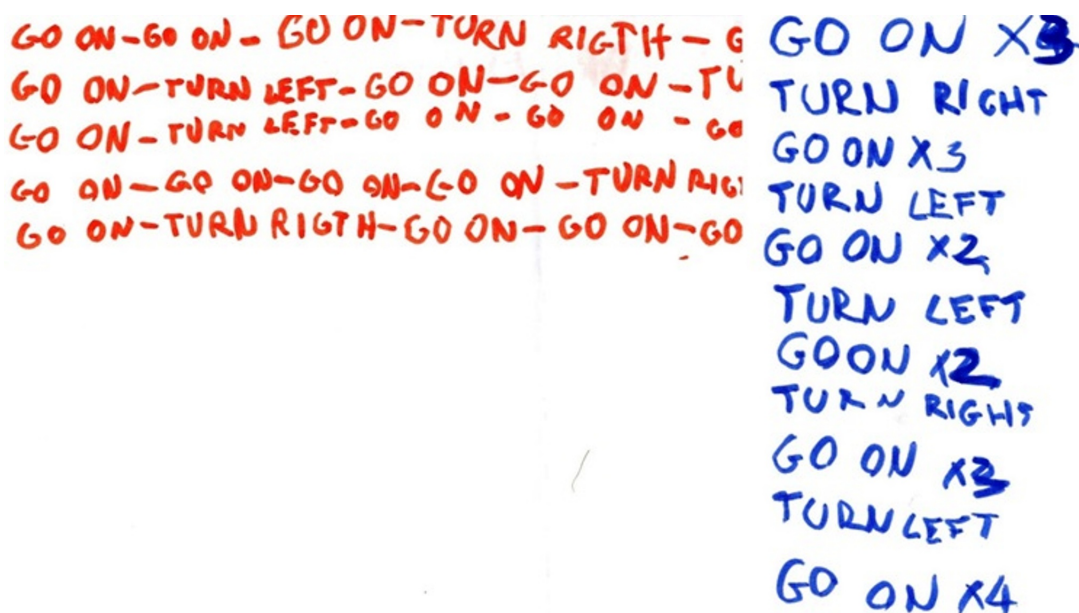 GO ON-GO ON- GO ON-TURN RIGTH - G
GO ON-TURN LEFT-GO ON-GO ON -TU
GO ON-TURN LEFT-GO ON - GO ON - GO
GO ON-GO ON-GO ON-GO ON -TURN RIG
GO ON-TURN RIGTH-GO ON-GO ON-GO
GO ON X3
TURN RIGHT
GO ON X3
TURN LEFT
GO ON X2
TURN LEFT
GO ON X2
TURN RIGHT
GO ON X3
TURN LEFT
GO ON X4